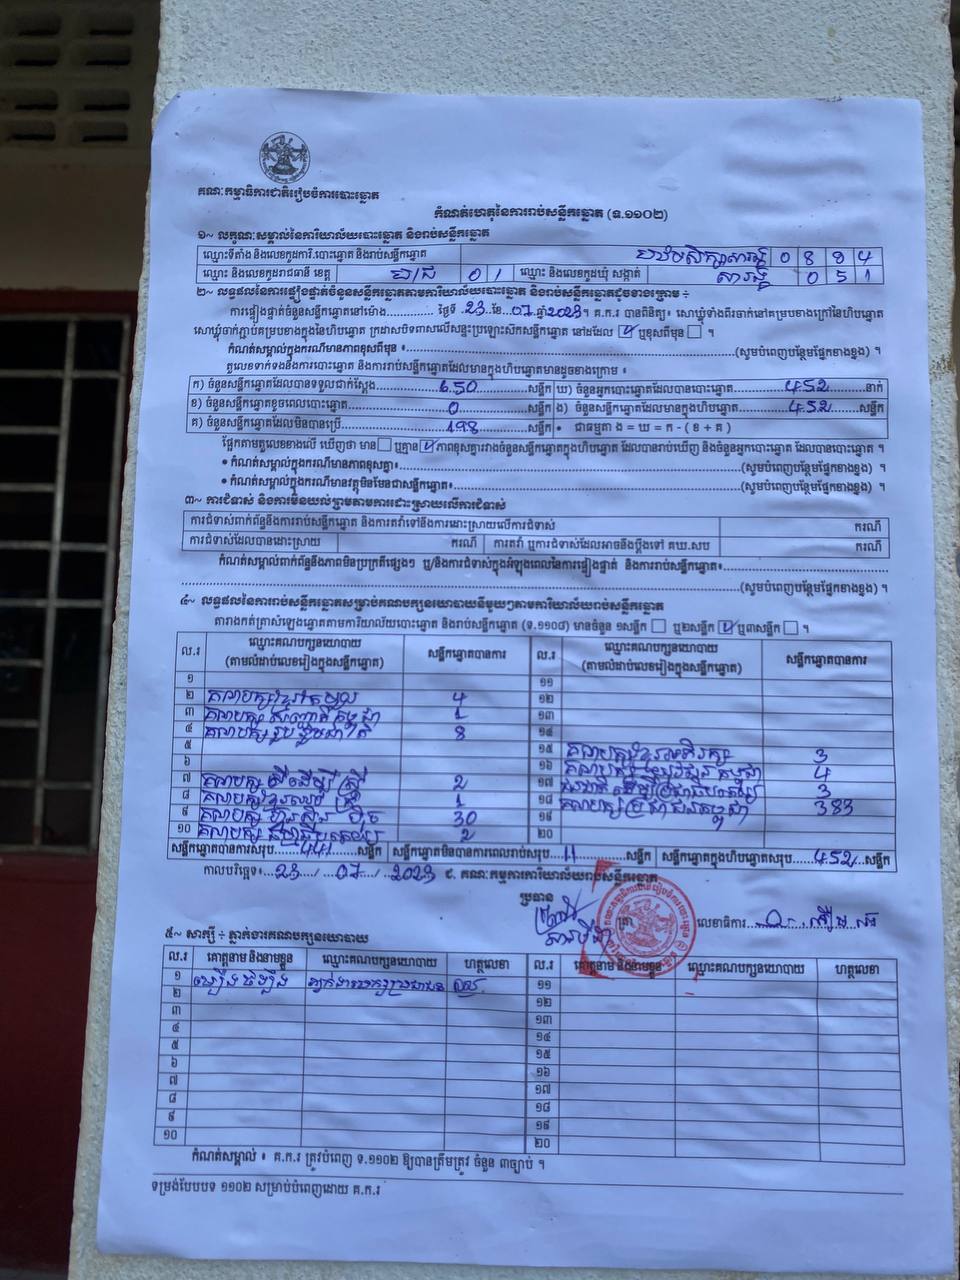 គណៈកម្មាធិការជាតិរៀបចំការបោះឆ្នោត
កំណត់ហេតុនៃការរាប់សន្លឹកឆ្នោត (ទ.១១០២)
១~ លក្ខណៈសម្គាល់នៃការិយាល័យបោះឆ្នោត និងរាប់សន្លឹកឆ្នោត
ឈ្មោះទីតាំង និងលេខកូដការិ.បោះឆ្នោត និងរាប់សន្លឹកឆ្នោត 0 8 9 4
ឈ្មោះ និងលេខកូដរាជធានី ខេត្ត ប/ជ 0 1 ឈ្មោះ និងលេខកូដឃុំ សង្កាត់ 0 5 1
២~ លទ្ធផលនៃការផ្ទៀងផ្ទាត់ចំនួនសន្លឹកឆ្នោតតាមការិយាល័យបោះឆ្នោត និងរាប់សន្លឹកឆ្នោតដូចខាងក្រោម ÷
ការផ្ទៀងផ្ទាត់ចំនួនសន្លឹកឆ្នោតនៅម៉ោង............. ថ្ងៃទី 23 ខែ 07 ឆ្នាំ 2023។ គ.ក.រ បានពិនិត្យ៖ សោឃ្លុំទាំងពីរចាក់នៅគម្របខាងក្រៅនៃហិបឆ្នោត
សោឃ្លុំចាក់ភ្ជាប់គម្របខាងក្នុងនៃហិបឆ្នោត ក្រដាសបិទពាសលើសន្ទះប្រឡោះសិកសន្លឹកឆ្នោត នៅដដែល ☑ ឬខុសពីមុន ☐ ។
កំណត់សម្គាល់ក្នុងករណីមានភាពខុសពីមុន ៖ (សូមបំពេញបន្ថែមផ្នែកខាងខ្នង) ។
តួលេខទាក់ទងនឹងការបោះឆ្នោត និងការរាប់សន្លឹកឆ្នោតដែលមានក្នុងហិបឆ្នោតមានដូចខាងក្រោម ៖
ក) ចំនួនសន្លឹកឆ្នោតដែលបានទទួលជាក់ស្តែង 650 សន្លឹក ឃ) ចំនួនអ្នកបោះឆ្នោតដែលបានបោះឆ្នោត 452 នាក់
ខ) ចំនួនសន្លឹកឆ្នោតខូចពេលបោះឆ្នោត 0 សន្លឹក ង) ចំនួនសន្លឹកឆ្នោតដែលមានក្នុងហិបឆ្នោត 452 សន្លឹក
គ) ចំនួនសន្លឹកឆ្នោតដែលមិនបានប្រើ 198 សន្លឹក • ជាធម្មតា ង = ឃ = ក - ( ខ + គ )
ផ្អែកតាមតួលេខខាងលើ ឃើញថា មាន ☐ ឬគ្មាន ☑ ភាពខុសគ្នារវាងចំនួនសន្លឹកឆ្នោតក្នុងហិបឆ្នោត ដែលបានរាប់ឃើញ និងចំនួនអ្នកបោះឆ្នោត ដែលបានបោះឆ្នោត ។
• កំណត់សម្គាល់ក្នុងករណីមានភាពខុសគ្នា៖ (សូមបំពេញបន្ថែមផ្នែកខាងខ្នង) ។
• កំណត់សម្គាល់ក្នុងករណីមានវត្ថុមិនមែនជាសន្លឹកឆ្នោត៖ (សូមបំពេញបន្ថែមផ្នែកខាងខ្នង) ។
៣~ ការជំទាស់ និងការមិនយល់ព្រមតាមការដោះស្រាយលើការជំទាស់
ការជំទាស់ពាក់ព័ន្ធនឹងការរាប់សន្លឹកឆ្នោត និងការតវ៉ាទៅនឹងការដោះស្រាយលើការជំទាស់ ករណី
ការជំទាស់ដែលបានដោះស្រាយ ករណី ការតវ៉ា ឬការជំទាស់ដែលអាចនឹងប្តឹងទៅ គឃ.សប ករណី
កំណត់សម្គាល់ពាក់ព័ន្ធនឹងភាពមិនប្រក្រតីផ្សេងៗ ឬ/និងការជំទាស់ក្នុងអំឡុងពេលនៃការផ្ទៀងផ្ទាត់ និងការរាប់សន្លឹកឆ្នោត៖
(សូមបំពេញបន្ថែមផ្នែកខាងខ្នង) ។
៤~ លទ្ធផលនៃការរាប់សន្លឹកឆ្នោតសម្រាប់គណបក្សនយោបាយនីមួយៗតាមការិយាល័យរាប់សន្លឹកឆ្នោត
តារាងកត់ត្រាសំឡេងឆ្នោតតាមការិយាល័យបោះឆ្នោត និងរាប់សន្លឹកឆ្នោត (ទ.១១០៨) មានចំនួន ១សន្លឹក ☐ ឬ២សន្លឹក ☑ ឬ៣សន្លឹក ☐ ។
ល.រ ឈ្មោះគណបក្សនយោបាយ (តាមលំដាប់លេខរៀងក្នុងសន្លឹកឆ្នោត) សន្លឹកឆ្នោតបានការ ល.រ ឈ្មោះគណបក្សនយោបាយ (តាមលំដាប់លេខរៀងក្នុងសន្លឹកឆ្នោត) សន្លឹកឆ្នោតបានការ
១ ១១
២ គណបក្ស 4 ១២
៣ គណបក្ស 1 ១៣
៤ គណបក្ស 8 ១៤
៥ ១៥ គណបក្ស 3
៦ ១៦ គណបក្ស 4
៧ គណបក្ស 2 ១៧ 3
៨ គណបក្ស 1 ១៨ គណបក្សប្រជាជនកម្ពុជា 383
៩ គណបក្ស 30 ១៩
១០ គណបក្ស 2 ២០
សន្លឹកឆ្នោតបានការសរុប 441 សន្លឹក សន្លឹកឆ្នោតមិនបានការពេលរាប់សរុប 11 សន្លឹក សន្លឹកឆ្នោតក្នុងហិបឆ្នោតសរុប 452 សន្លឹក
កាលបរិច្ឆេទ៖ 23 / 07 / 2023 ជ. គណៈកម្មការការិយាល័យរាប់សន្លឹកឆ្នោត
ប្រធាន
ត្រា លេខាធិការ
៥~ សាក្សី ÷ ភ្នាក់ងារគណបក្សនយោបាយ
ល.រ គោត្តនាម និងនាមខ្លួន ឈ្មោះគណបក្សនយោបាយ ហត្ថលេខា ល.រ គោត្តនាម និងនាមខ្លួន ឈ្មោះគណបក្សនយោបាយ ហត្ថលេខា
១ ១១
២ ១២
៣ ១៣
៤ ១៤
៥ ១៥
៦ ១៦
៧ ១៧
៨ ១៨
៩ ១៩
១០ ២០
កំណត់សម្គាល់ ៖ គ.ក.រ ត្រូវបំពេញ ទ.១១០២ ឱ្យបានត្រឹមត្រូវ ចំនួន ៣ច្បាប់ ។
ទម្រង់បែបបទ ១១០២ សម្រាប់បំពេញដោយ គ.ក.រ